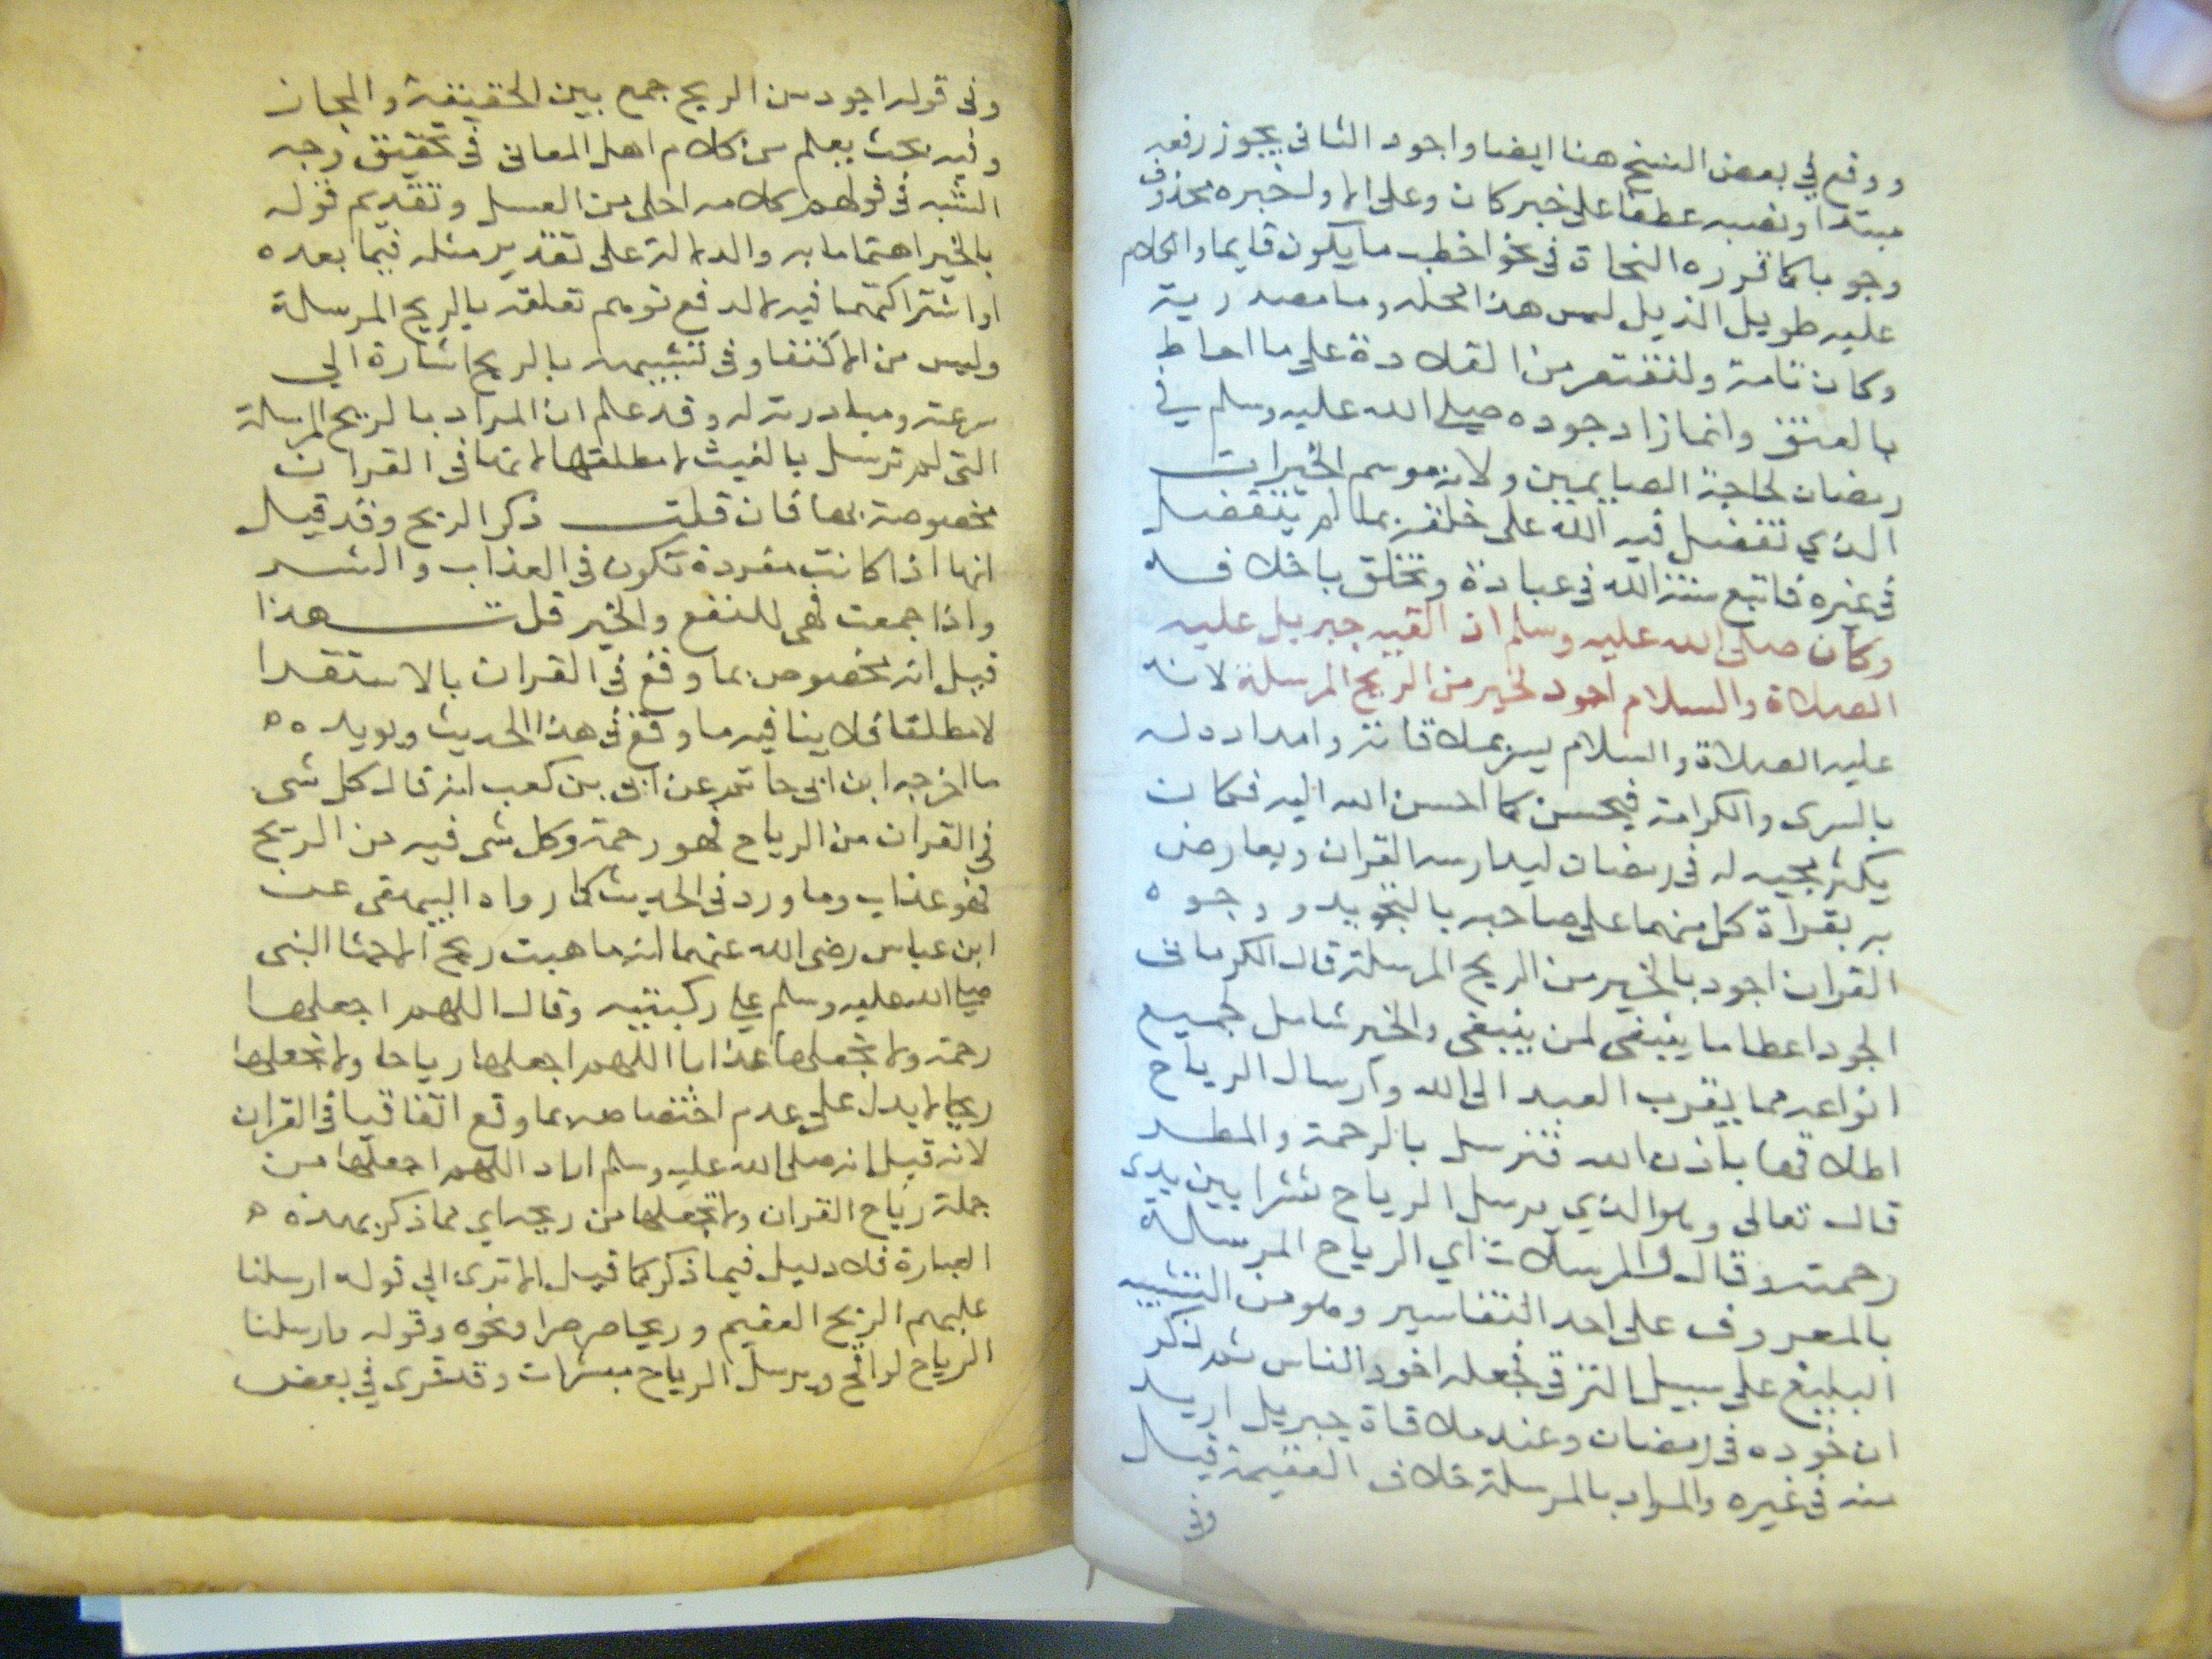 ووقع في بعض النسخ هنا ايضا واجود الثاني يجوز رفعه
مبتدا ونصبه عطفا على خبر كان وعلى الاول خبره محذوف
وجوبا كما قرره النحاة في نحو اخطب ما يكون قايما والكلام
عليه طويل الذيل ليس هذا محله وما مصدرية
وكان تامة ولنقتصر من القلادة على ما احاط
بالعنق وانما زاد جوده صلى الله عليه وسلم في
رمضان لحاجة الصايمين ولانه موسم الخيرات
الذي تفضل فيه الله على خلقه بما لم يتفضل
في غيره فاتبع سنة الله في عباده وتخلق باخلاقه
وكان صلى الله عليه وسلم اذا لقيه جبريل عليه
الصلاة والسلام اجود لخير من الريح المرسلة لانه
عليه الصلاة والسلام يسر بملاقاته وامداده له
بالبسرى والكرامة فيحسن كما احسن الله اليه فكان
يكثر مجيه له في رمضان ليدارسه القران ويعارض
به بقراة كل منهما على صاحبه بالتجويد ووجوه
القران اجود بالخير من الريح المرسلة قال الكرماني
الجود اعطا ما ينبغي لمن ينبغي والخير شامل لجميع
انواعه مما يقرب العبد الى الله وارسال الرياح
اطلاقها باذن الله فترسل بالرحمة والمطر
قال تعالى وهو الذي يرسل الرياح نشرا بين يدي
رحمته وقال والمرسلات اي الرياح المرسلة
بالمعروف على احد التفاسير وهو من التشبيه
البليغ على سبيل الترقي فجعله اجود الناس ثم ذكر
ان جوده في رمضان وعند ملاقاة جبريل ازيد
منه في غيره والمراد بالمرسلة خلاف العقيمة قيل
وفي
وفي قوله اجود من الريح جمع بين الحقيقة والمجاز
وفيه بحث يعلم من كلام اهل المعاني في تحقيق وجه
الشبه في قولهم كلامه احلى من العسل وتقديم قوله
بالخير اهتماما به والدلالة على تقدير مثله فيما بعده
او اشتراكهما فيه لا لدفع توهم تعلقه بالريح المرسلة
وليس من الاكتفا وفي تشبيهه بالريح اشارة الى
سرعته ومبادرته له وقد علم ان المراد بالريح المرسلة
التي لم ترسل بالغيث لا مطلقها لانها في القران
مخصوصة بها فان قلت ذكر الريح وقد قيل
انها اذا كانت مفردة تكون في العذاب والشر
واذا جمعت فهي للنفع والخير قلت هذا
قيل انه مخصوص بما وقع في القران بالاستقرا
لا مطلقا فلا ينافيه ما وقع في هذا الحديث ويويده ه
ما اخرجه ابن ابي حاتم عن ابي بن كعب انه قال كل شي
في القران من الرياح فهو رحمة وكل شي فيه من الريح
فهو عذاب وما ورد في الحديث كما رواه البيهقي عن
ابن عباس رضي الله عنهما انه ما هبت ريح الا جثا النبي
صلى الله عليه وسلم على ركبتيه وقال اللهم اجعلها
رحمة ولا تجعلها عذابا اللهم اجعلها رياحا ولا تجعلها
ريحا لا يدل على عدم اختصاصه بما وقع اتفاقيا في القران
لانه قيل انه صلى الله عليه وسلم اراد اللهم اجعلها من
جملة رياح القران ولا تجعلها من ريحه اي مما ذكر بهذه ه
العبارة فلا دليل فيما ذكر كما قيل الا ترى الى قوله ارسلنا
عليهم الريح العقيم وريحا صرصرا ونحوه وقوله وارسلنا
الرياح لواقح ويرسل الرياح مبشرات وقد قرى في بعض